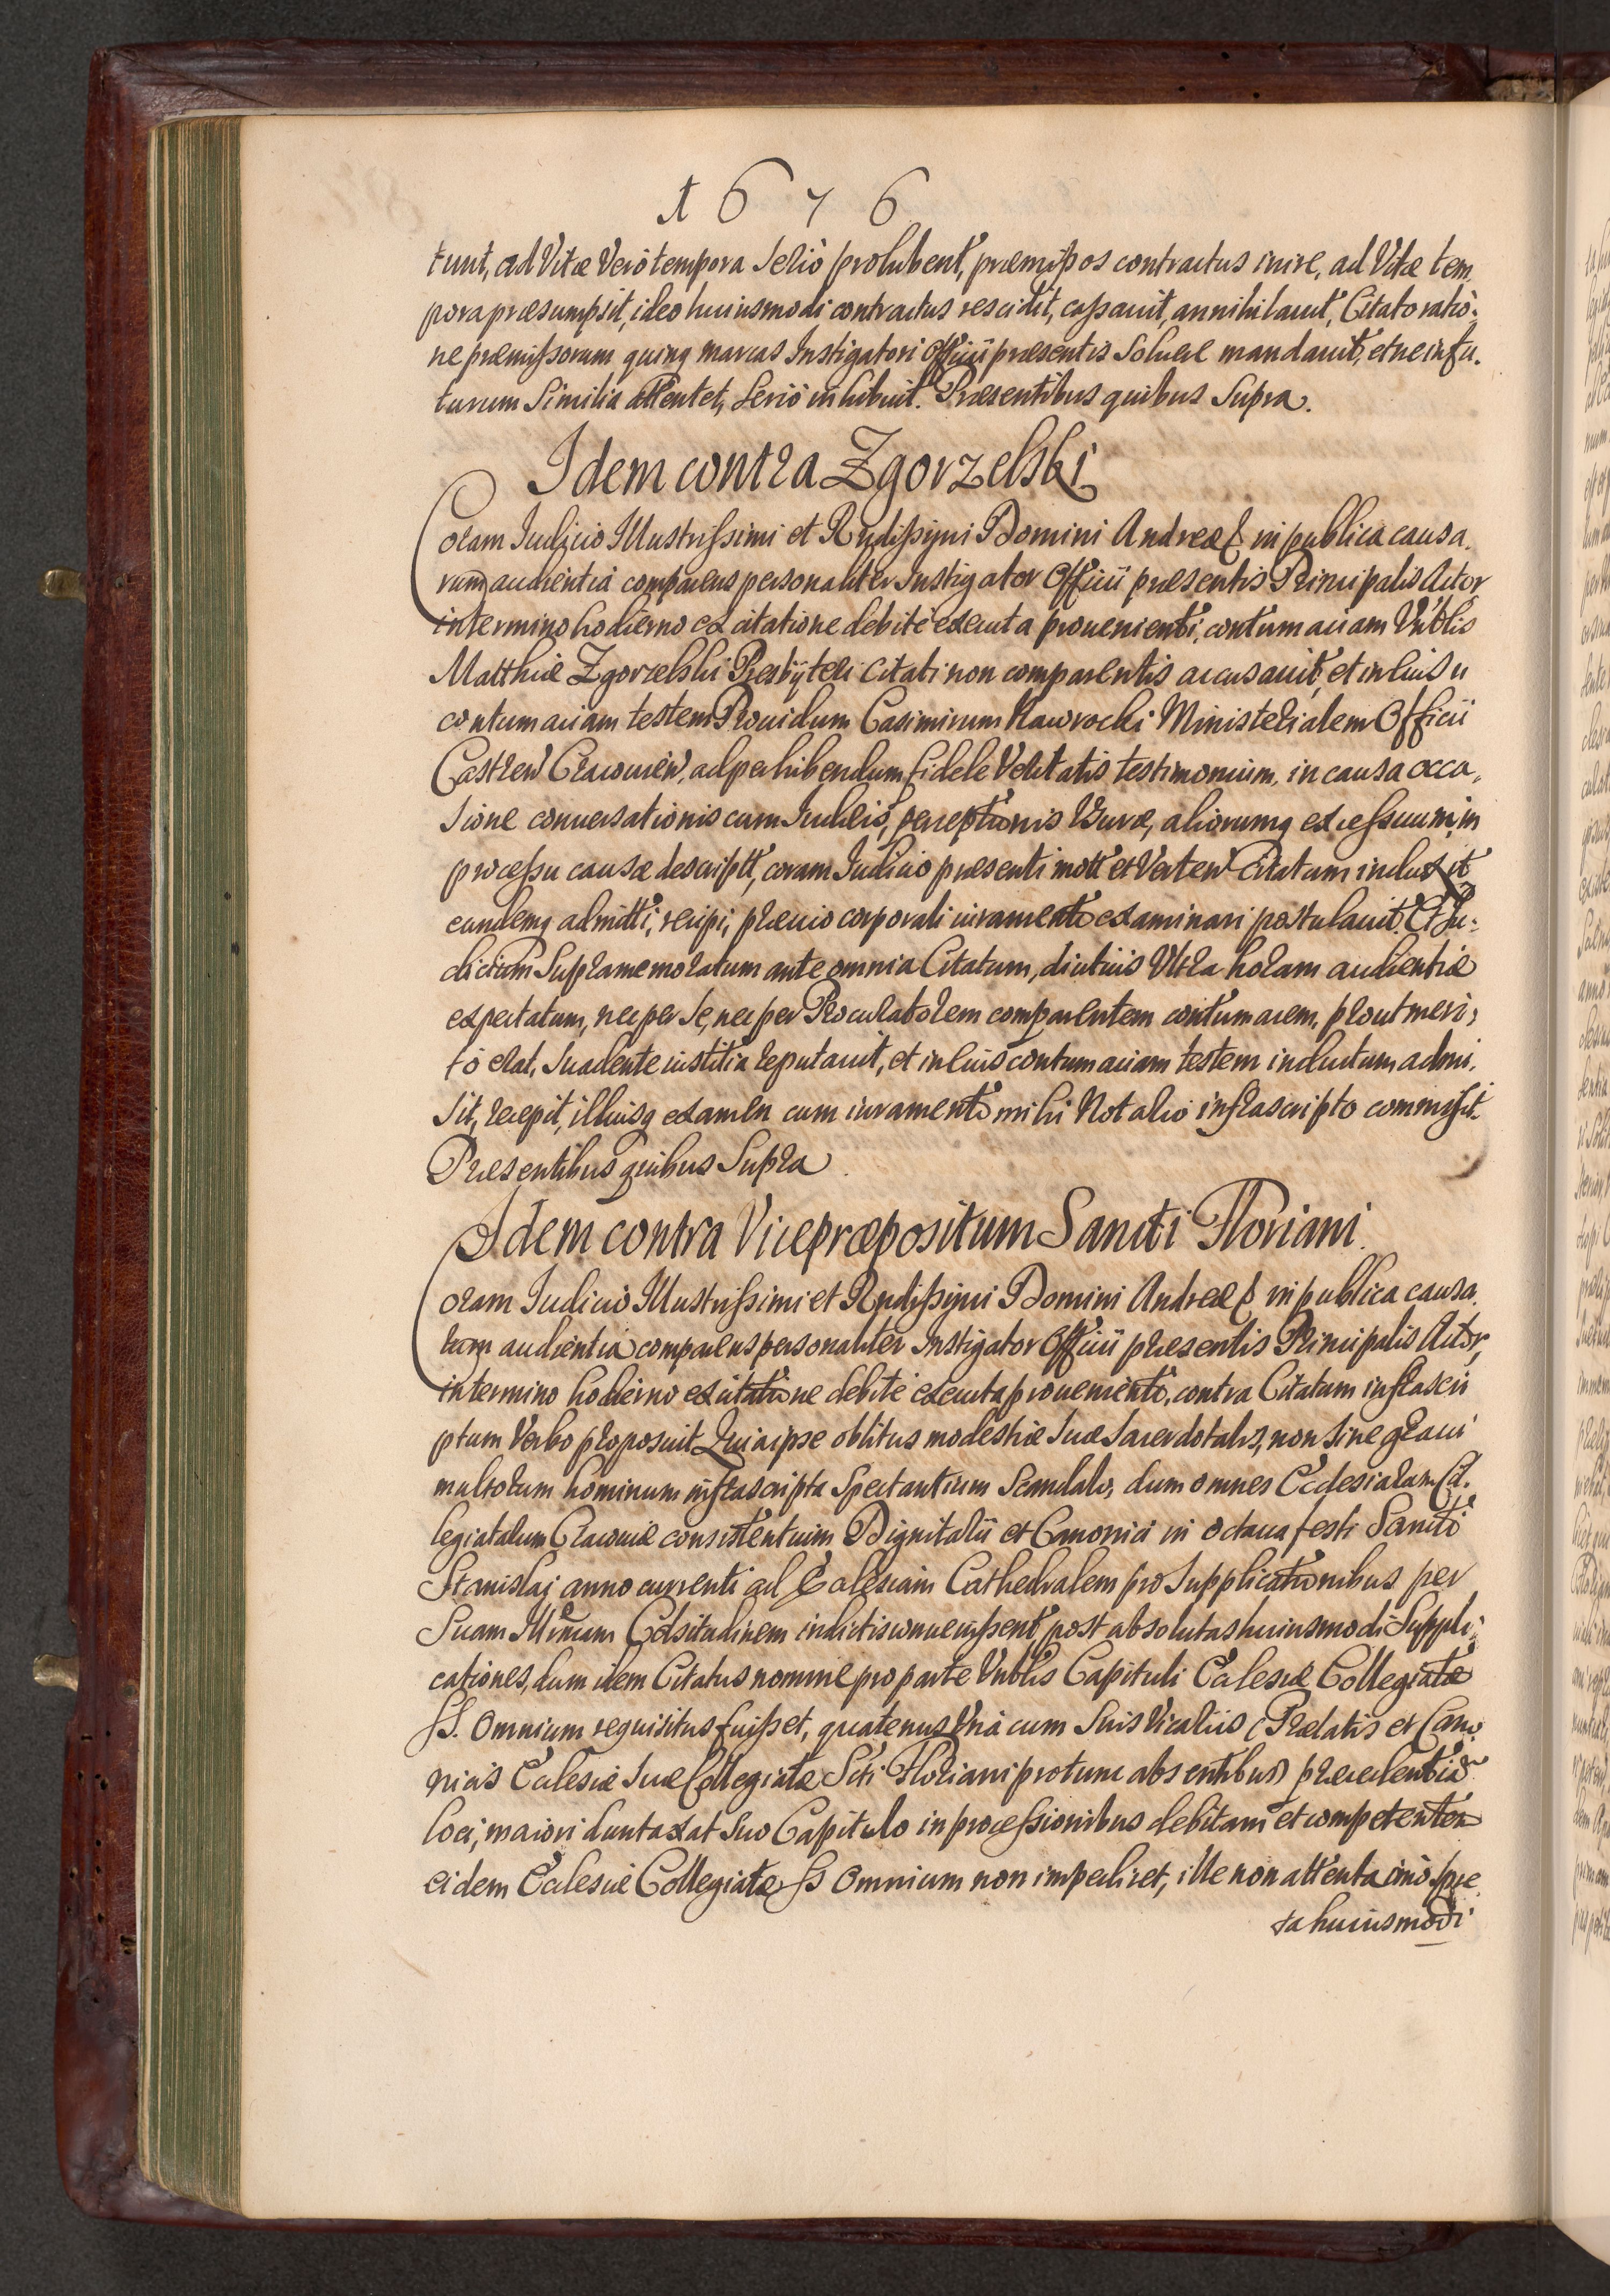 1676
tunt, ad Vitæ Verò tempora seriò prohibent, præmissos contractus inire, ad Vitæ tem
pora præsumpsit, ideo huiusmodi contractus rescidit, cassauit, annihilauit, Citato ratio-
ne præmissorum quinq marcas Instigatori Officii præsentis Soluere mandauit, et ne in fu-
turum Similia attentet, Seriò inhibuit. Præsentibus quibus Supra.
Idem contra Zgorzelski
Coram Iudicio Illustrissimi et Rndissimi Domini Andreæ & in publica causa-
rum audientia comparens personaliter Instigator Officii præsentis Principalis Actor
in termino hodierno ex citatione debitè executa prouenienti, contumaciam Vnblis
Matthiæ Zgorzelski Presbyteri Citati non comparentis accusauit, et in eius
contumaciam testem Prouidum Casimirum Nawrocki Ministerialem Officii
Castren Cracouien, ad perhibendum fidele Veritatis testimonium, in causa occa-
sione conuersationis cum Iudæis, perceptionis Vsuræ, aliorumq excessuum in
processu causæ descriptt, coram Iudicio præsenti mott et Verten Citatum induxit
eundemq admitti, recipi, præuio corporali iuramento examinari postulauit. Et Iu-
dicium Suprамemoratum ante omnia Citatum, diutius Vltra horam audientiæ
expectatum, nec per Se, nec per Procuratorem comparentem contumacem, prout meri-
tò erat, Suadente iustitia reputauit, et in eius contumaciam testem inductum admi-
sit, recepit, illiusq examen cum iuramento mihi Notario infrascripto commisit.
Præsentibus quibus Supra
Idem contra Vicepræpositum Sancti Floriani.
Coram Iudicio Illustrissimi et Rndissimi Domini Andreæ & in publica causa-
rum audientia comparens personaliter Instigator Officii præsentis Principalis Actor,
in termino hodierno ex citatione debitè executa prouenienti, contra Citatum infrascri
ptum Verbo proposuit Quia ipse oblitus modestiæ Suæ Sacerdotalis, non sine graui
multorum hominum infrascripta Spectantium Scandalo, dum omnes Ecclesiarum Col-
legiatarum Cracouiæ consistentium Dignitarii et Canonici in octaua festi Sancti
Stanislai anno currenti ad Ecclesiam Cathedralem pro Supplicationibus per
Suam Illrmam Celsitudinem indictis conuenissent, post absolutas huiusmodi Suppli-
cationes, dum idem Citatus nomine pro parte Vnblis Capituli Ecclesiæ Collegiatæ
SS. Omnium requisitus fuisset, quatenus Vnà cum Suis Vicariis (Prælatis et Cano-
nicis Ecclesiæ Suæ Collegiatæ Scti Floriani protunc absentibus) præcedentiam
loci, maiori duntaxat Suo Capitulo in processionibus debitam et competenten
eidem Ecclesiæ Collegiatæ SS Omnium non impediret, ille non attenta imò spre
ta huiusmodi